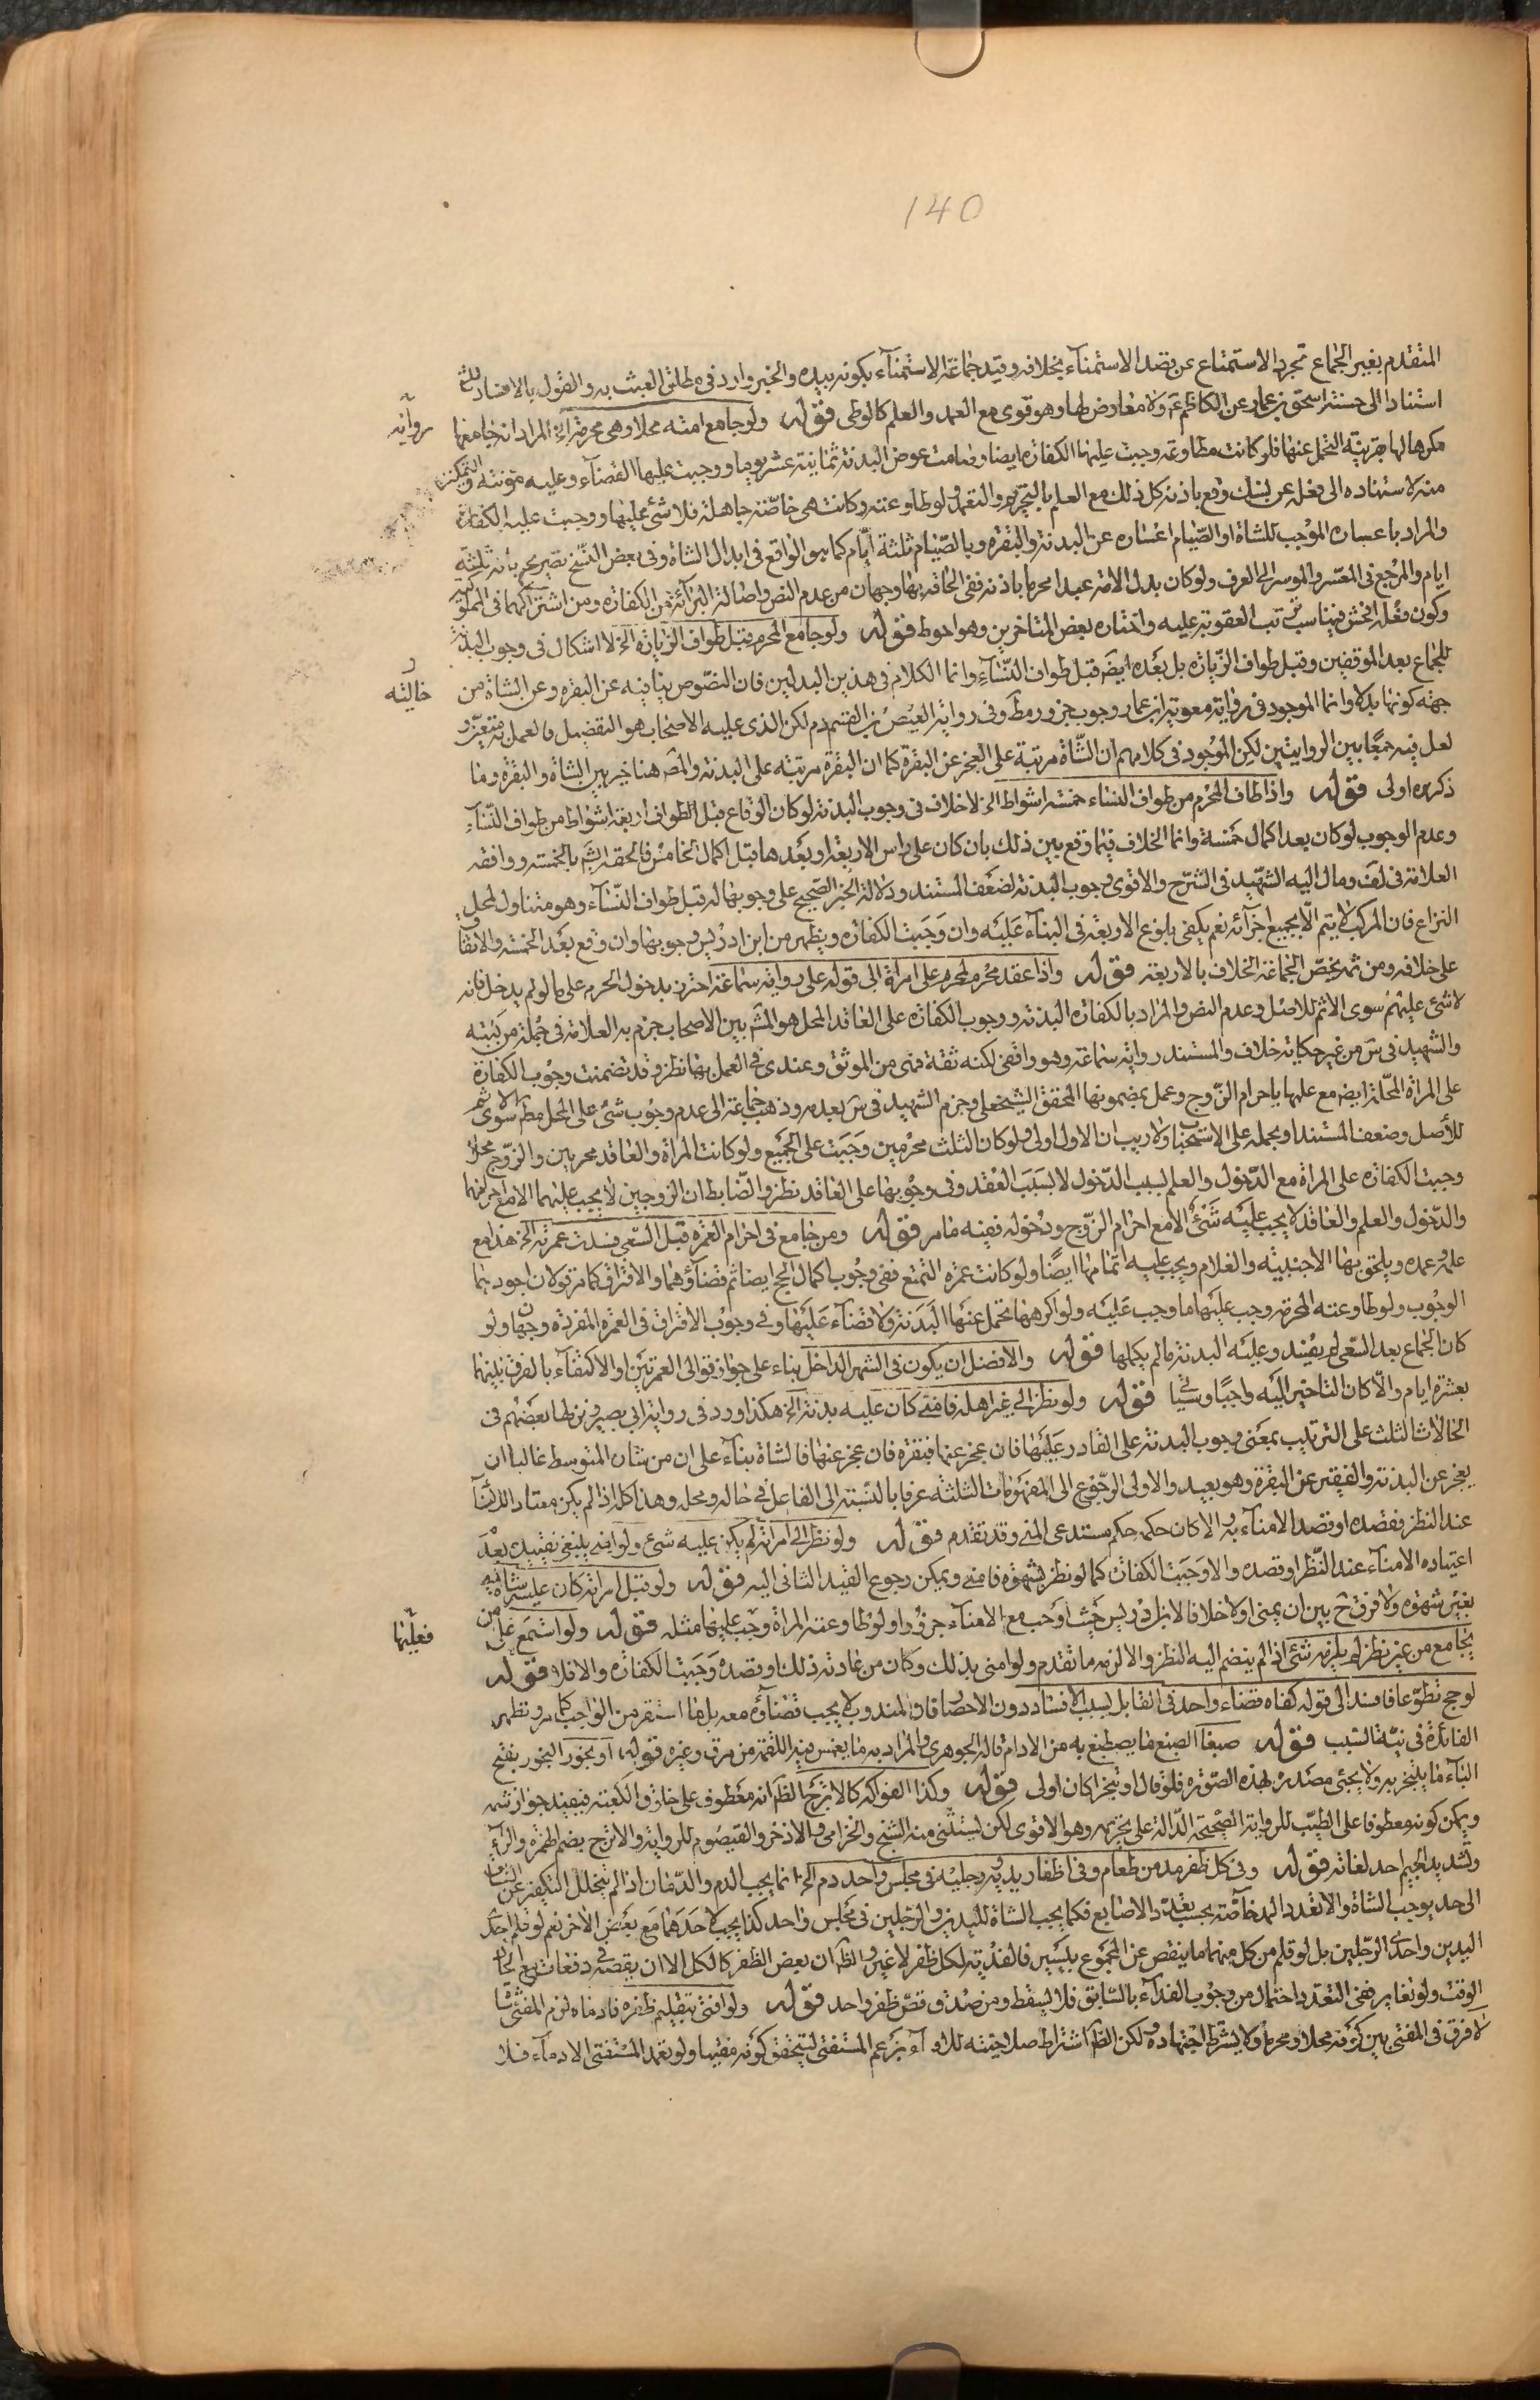 140
المتقدم بغير الجماع تجرد الاستمتاع عن قصد الاستمنآء بخلافه وقيد جماعة الاستمنآء بكونه بيده والخبر وارد فى مطلق العبث به والقول بالافساد للشيخ
استنادا الى حسنة اسحق بن عمار عن الكاظم عم ولا معارض لها وهو قوى مع العمد والعلم كالوطى قوله ولو جامع امته محلا وهى محرمة الخ المراد انه جامعها
رواية
مكرها لها بقرينة التحمل عنها فلو كانت مطاوعة وجبت عليها الكفارة ايضا وصامت عوض البدنة ثمانية عشر يوما ووجبت عليها القضآء وعليه مؤنته والتمكين
منه لاستناده الى فعله عن نسك وقع باذنه كل ذلك مع العلم بالتحريم والتعمد ولو طاوعته وكانت هى خاصة جاهلة فلا شئ عليها ووجبت عليه الكفارة
والمراد باعساره الموجب للشاة او الصيام اعساره عن البدنة والبقرة وبالصيام ثلثة ايام كما هو الواقع فى ابدال الشاة وفى بعض النسخ تصريح بانه ثلثة
ايام والمرجع فى المعسر والموسر الى العرف ولو كان بدل الامة عبدا محرما باذنه ففى الحاقه بها وجهان من عدم النص واصالة البرآئة من الكفارة ومن اشتراكهما فى المملوكية
وكون فعله افحش فيناسب ترتب العقوبة عليه واختاره بعض المتاخرين وهو احوط قوله ولو جامع المحرم قبل طواف الزيارة الخ لا اشكال فى وجوب البدنة
للجماع بعد الموقفين وقبل طواف الزيارة بل بعده ايض قبل طواف النسآء وانما الكلام فى هذين البدلين فان النصوص ينافيه عن البقرة وعن الشاة من
خالية
جهة كونها بدلا وانما الموجود فى رواية معوية بن عمار وجوب جزور مط وفى رواية العيص بن القسم دم لكن الذى عليه الاصحاب هو التفضيل فالعمل به متعين و
لعل فيه جمعا بين الروايتين لكن الموجود فى كلامهم ان الشاة مرتبة على العجز عن البقرة كما ان البقرة مرتبة على البدنة والمص هنا خير بين الشاة والبقرة وما
ذكروه اولى قوله واذا طاف المحرم من طواف النساء خمسة اشواط الخ لا خلاف فى وجوب البدنة لو كان الوقاع قبل الطواف اربعة اشواط من طواف النسآء
وعدم الوجوب لو كان بعد اكمال خمسة وانما الخلاف فيما وقع بين ذلك بان كان على راس الاربعة او بعدها قبل اكمال الخامس فالحقه الشيخ بالخمسة ووافقه
العلامة فى لف ومال اليه الشهيد فى الشرح والاقوى وجوب البدنة لضعف المستند ودلالة الخبر الصحيح على وجوبها له قبل طواف النسآء وهو متناول لمحل
النزاع فان المركب لا يتم الا بجميع اجزآئه نعم يكفى بلوغ الاربعة فى البنآء عليه وان وجبت الكفارة ويظهر من ابن ادريس وجوبها وان وقع بعد الخمسة والاتفاق
على خلافه ومن ثمه يخص الجماعة الخلاف بالاربعة قوله واذا عقد محرم لمحرم على امراة الى قوله على رواية سماعة احترز بدخول المحرم على ما لو لم يدخل فانه
لا شئ عليهم سوى الاثم للاصل وعدم النص والمراد بالكفارة البدنة ووجوب الكفارة على العاقد المحل هو المش بين الاصحاب جزم به العلامة فى جملة من كتبه
والشهيد فى س من غير حكاية خلاف والمستند رواية سماعة وهو واقفى لكنه ثقة فهى من الموثق وعندى فى العمل بها نظر وقد تضمنت وجوب الكفارة
على المراة المحلة ايض مع علمها باحرام الزوج وعمل بمضمونها المحقق الشيخ على وجزم الشهيد فى س بعدمه وذهب جماعة الى عدم وجوب شئ على المحل مط سوى الاثم
للأصل وضعف المستند او بحمله على الاستحباب ولا ريب ان الاول اولى ولو كان الثلث محرمين وجبت على الجميع ولو كانت المراة والعاقد محرمين والزوج محلا
وجبت الكفارة على المراة مع الدخول والعلم بسبب الدخول لا بسبب العقد وفى وجوبها على العاقد نظر والضابط ان الزوجين لا يجب عليهما الا مع احرامهما
والدخول والعلم والعاقد لا يجب عليه شئ الا مع احرام الزوج ودخوله ففيه ما مر قوله ومن جامع فى احرام العمرة قبل السعى فسدت عمرته الخ هذا مع
علمه وعمده ويلحق بها الاجنبية والغلام ويجب عليه اتمامها ايضا ولو كانت عمرة التمتع ففى وجوب اكمال الحج ايضا ثم قضآؤهما والافتراق كما مر قولان اجودهما
الوجوب ولو طاوعته المحرمة وجب عليها ما وجب عليه ولو اكرهها تحمل عنها البدنة ولا قضآء عليها وفى وجوب الافتراق فى العمرة المفردة وجهان ولو
كان الجماع بعد السعى لم يفسد وعليه البدنة ما لم يكملها قوله والافضل ان يكون فى الشهر الداخل بناء على جواز توالى العمرتين او الاكتفآء بالفرق بينهما
بعشرة ايام والا كان التاخير اليه واجبا وسيأتى قوله ولو نظر الى غير اهله فامنى كان عليه بدنة الخ هكذا ورد فى رواية ابى بصير ونزلها بعضهم فى
الحالات الثلث على الترتيب بمعنى وجوب البدنة على القادر عليها فان عجز عنها فبقرة فان عجز عنها فالشاة بناء على ان من شان المتوسط غالبا ان
يعجز عن البدنة والفقير عن البقرة وهو بعيد والاولى الرجوع الى المفهومات الثلثة عرفا بالنسبة الى الفاعل فى حاله ومحله وهذا كله اذا لم يكن معتاد الامنآء
عند النظر بقصده او قصد الامنآء به والا كان حكمه حكم مستدعى المنى وقد تقدم قوله ولو نظر الى امراته لم يكن عليه شئ ولو امنى ينبغى تقييده بعدم
اعتياده الامنآء عند النظر او قصده والا وجبت الكفارة كما لو نظر بشهوة فامنى ويمكن رجوع القيد الثانى اليه قوله ولو قبل امراته كان عليه شاة
بغير شهوة ولا فرق ح بين ان يمنى او لا خلافا لابن ادريس حيث اوجب مع الامنآء جزورا ولو طاوعته المراة وجب عليها مثله قوله ولو استمع على من
فعليها
يجامع من غير نظر لم يلزمه شئ اذا لم ينضم اليه النظر والا لزمه ما تقدم ولو امنى بذلك وكان من عادته ذلك او قصده وجبت الكفارة والا فلا قوله
لو حج تطوعا فافسد الى قوله كفاه قضاء واحد فى القابل بسبب الافساد دون الاحصار فان المندوب لا يجب قضآؤه معه بل ما استقر من الواجب كما مر وتظهر
الفائدة فى نية السبب قوله صبغا الصبغ ما يصطبغ به من الادام قاله الجوهرى والمراد به ما يغمس فيه اللقمة من مرق وغيره قوله او بخور البخور بفتح
البآء ما يتبخر به ولا يجئ مصدره بهذه الصورة فلو قال او تبخرا كان اولى قوله وكذا الفواكه كالاترج الظ انه معطوف على خلوق الكعبة فيفيد جواز شمه
ويمكن كونه معطوفا على الطيب للرواية الصحيحة الدالة على تحريمه وهو الاقوى لكن يستثنى منه الشيح والخزامى والاذخر والقيصوم للرواية والاترج بضم الهمزة والرآء
وتشديد الجيم احد لغاته قوله وفى كل ظفر مد من طعام وفى اظفار يديه ورجليه فى مجلس واحد دم الخ انما يجب الدم والدمان اذا لم يتخلل التكفير عن السابق
الى حد يوجب الشاة والا تعدد المد خاصة بحسب تعدد الاصابع فكما يجب الشاة لليدين والرجلين فى مجلس واحد كذا يجب لاحدهما مع بعض الاخر نعم لو قلم احدى
اليدين واحدى الرجلين بل لو قلم من كل منهما ما ينقص عن المجموع بيسير فالفدية لكل ظفر لا غير والظ ان بعض الظفر كالكل الا ان يقصه فى دفعات مع اتحاد
الوقت ولو تغاير ففى التعدد احتمال من وجوب الفدآء بالسابق فلا يسقط ومن صدق قص ظفر واحد قوله ولو افتى بتقليم ظفره فادماه لزم المفتى شاة
لا فرق فى المفتى بين كونه محلا ومحرما ولا يشترط اجتهاده ولكن الظ اشتراط صلاحيته للافتآء بزعم المستفتى ليتحقق كونه مفتيا ولو تعمد المستفتى الادمآء فلا